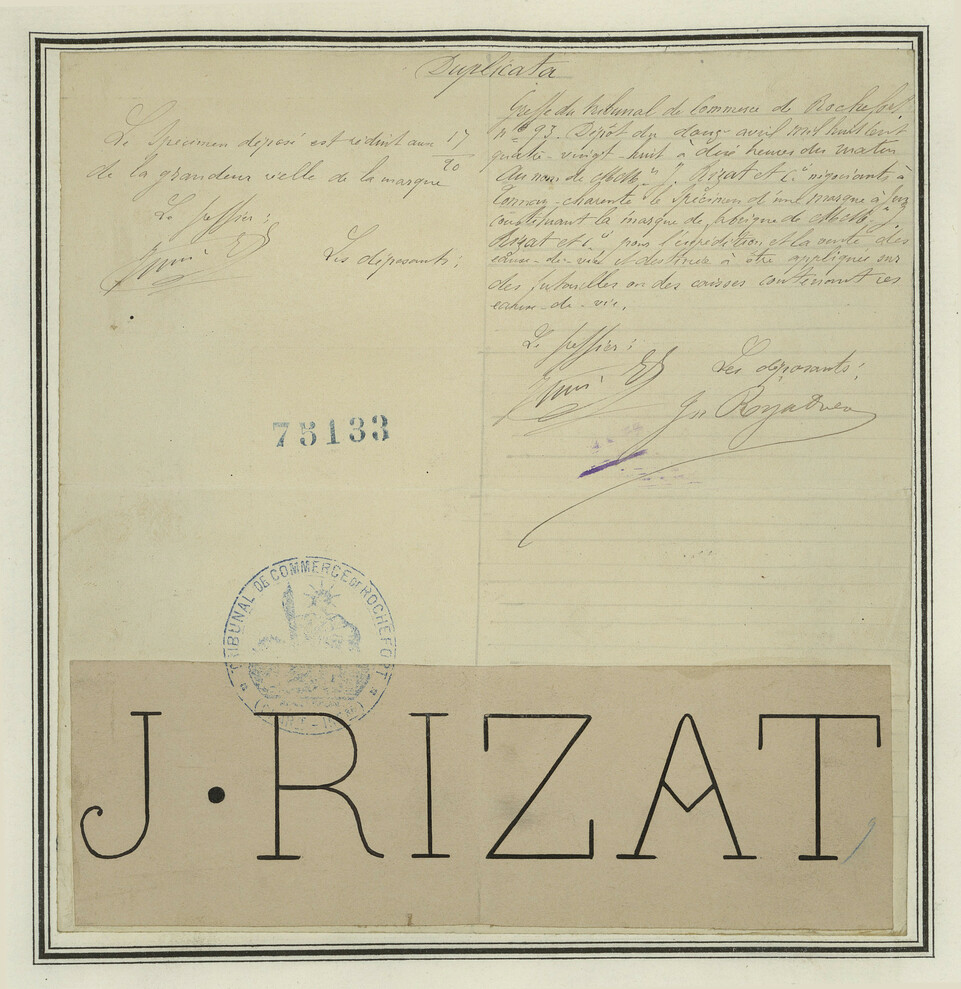 Duplicata
Le Spécimen déposé est réduit aux 17/20
de la grandeur réelle de la marque
Le greffier :
Les déposants :
Greffe du tribunal de Commerce de Rochefort,
N° 93. Dépôt du douze avril mil huit cent
quatre-vingt-huit à dix heures du matin
Au nom de MM. J. Rizat et Cie négociants à
Tonnay-Charente le Spécimen d'une marque à feu
constituant la marque de fabrique de
Rizat et Cie pour l'expédition et la vente des
eaux-de-vie et destinée à être appliquée sur
des futailles ou des caisses contenant ces
eaux-de-vie.
Le greffier :
Les déposants :
75133
TRIBUNAL DE COMMERCE DE ROCHEFORT
J. RIZAT